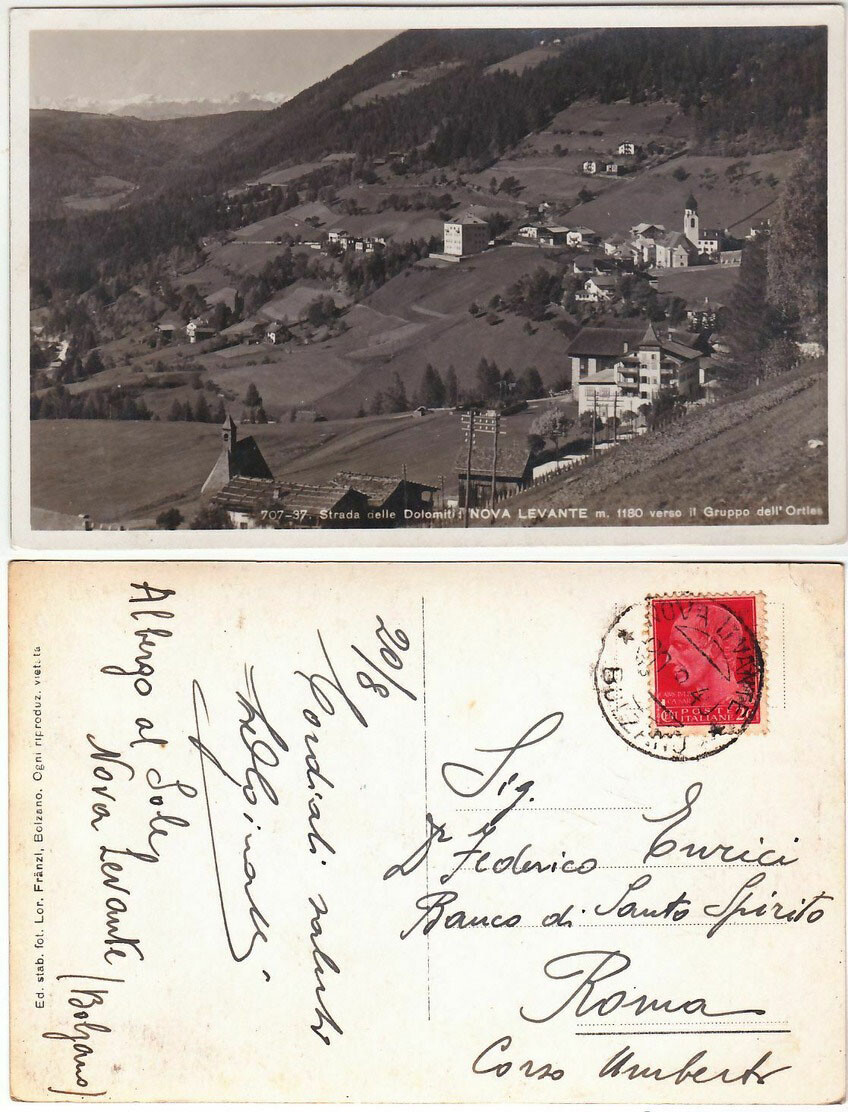 707-37. Strada delle Dolomiti: NOVA LEVANTE m. 1180 verso il Gruppo dell' Ortles
Ed. stab. fot. Lor. Fränzl, Bolzano. Ogni riproduz. vietata
Albergo al Sole
Nova Levante (Bolzano)
20/8
Cordiali saluti
NOVA LEVANTE
BOLZANO
POSTE
ITALIANE
Sig.
Dr Federico Enrici
Banco di Santo Spirito
Roma
Corso Umberto